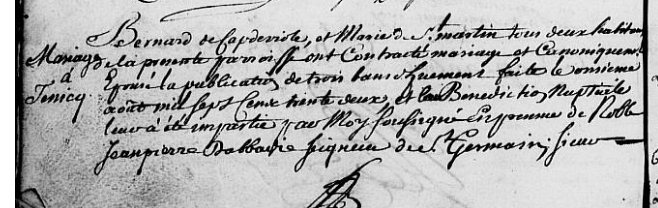 Mariage
a
Tenicq
Bernard de Capdeviole, et Marie de St martin tous deux habitans
de la presente parroisse ont Contracté mariage et Canoniquement
Epousé la publication de trois bans duement faite le onsieme
aout mil sept Cens trente deux et la Benediction Nuptiale
leur a été impartie par Moy soussigné En presence de Noble
Jeanpierre Dabbadie seigneur de St Germain, sieur